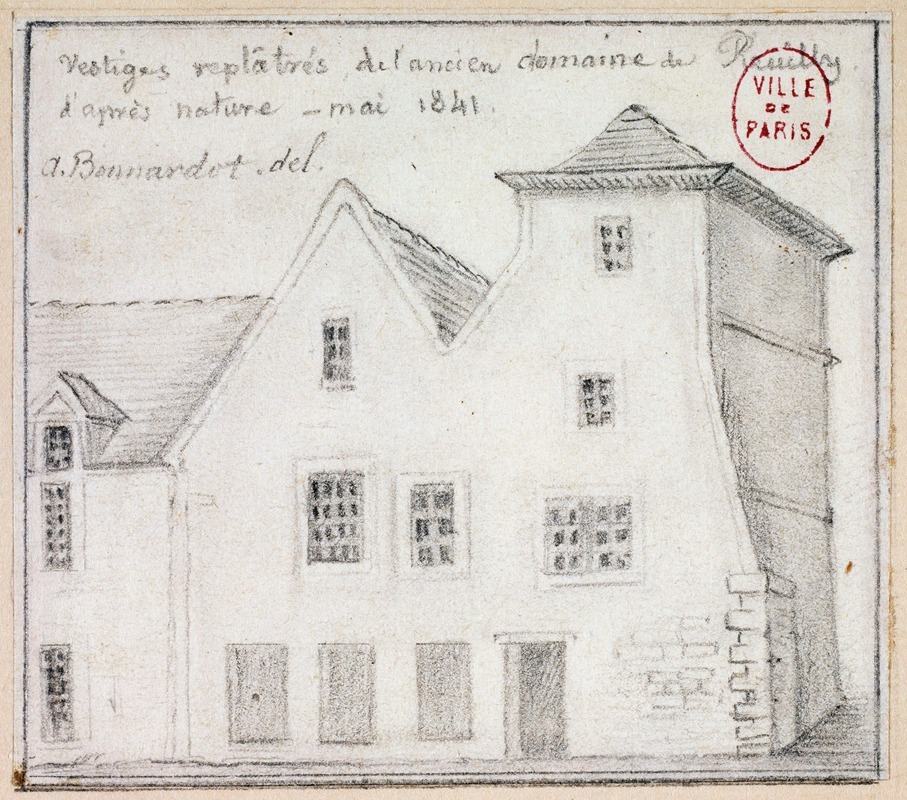 Vestiges replâtrés de l'ancien domaine de Reuilly.
d'après nature - mai 1841.
a. Bonnardot. del.
VILLE
DE
PARIS